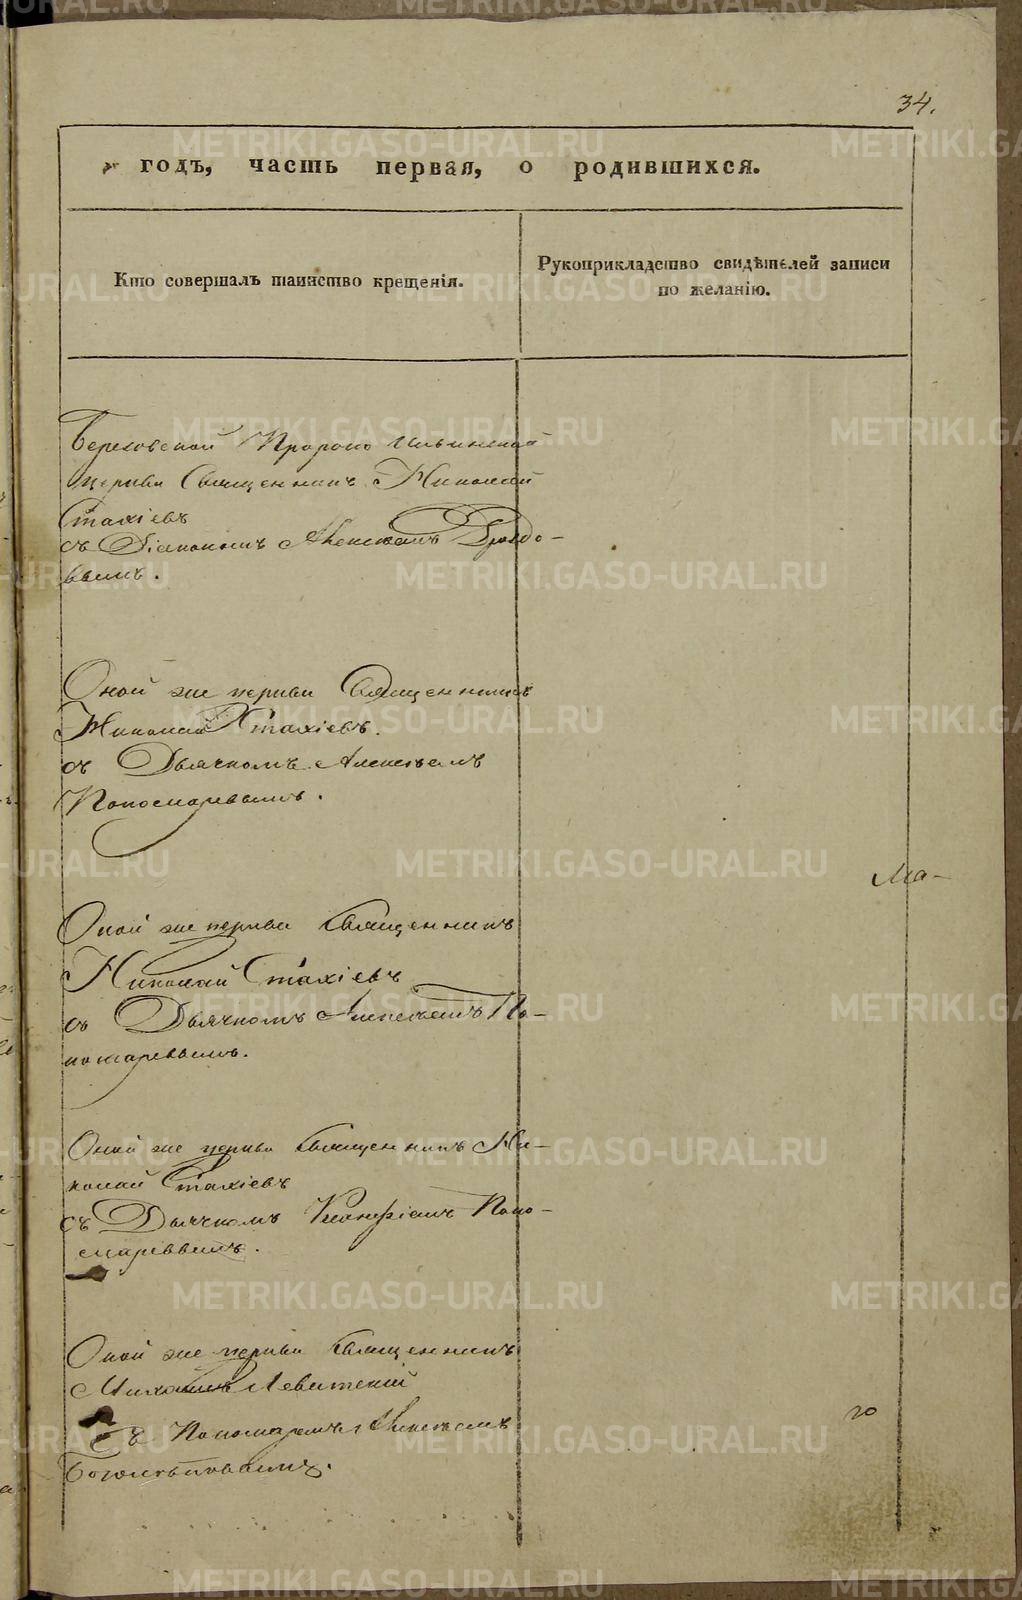 34.
годъ, часть первая, о родившихся.
Кто совершалъ таинство крещенія.
Рукоприкладство свидѣтелей записи
по желанію.
Березовской Пророко Ильинской
церкви Священникъ Николай
Стахіевъ
съ Діакономъ Алексѣемъ Дроздо-
вымъ.
Оной же церкви Священникъ
Николай Стахіевъ.
съ Дьячкомъ Алексѣемъ
Пономаревымъ.
Ма-
Оной же церкви Священникъ
Николай Стахіевъ
съ Дьячкомъ Алексѣемъ По-
номаревымъ.
Оной же церкви Священникъ Ни-
колай Стахіевъ
съ Дьячкомъ Поно-
маревымъ.
Оной же церкви Священникъ
Михаилъ Левитскій
го
съ Пономаремъ Алексѣемъ
METRIKI.GASO-URAL.RU